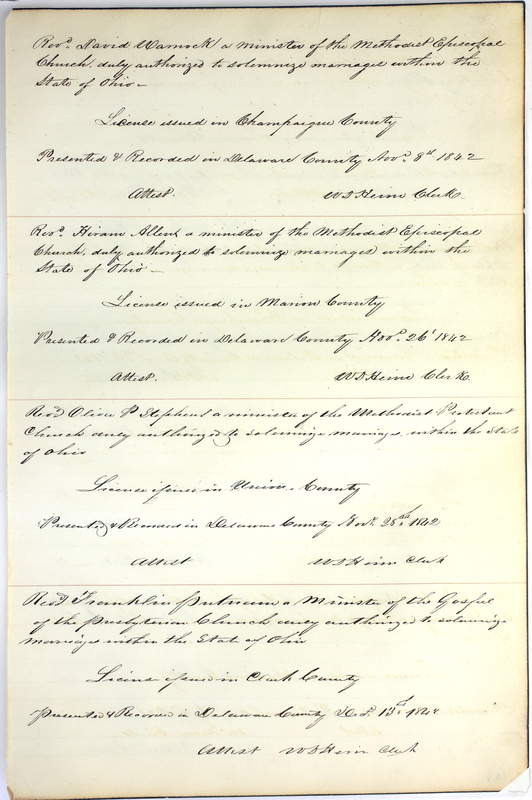 Revd. David Warnock a minister of the Methodist Episcopal
Church, duly authorized to solemnize marriages within the
State of Ohio —
License issued in Champaigne County
Presented & Recorded in Delaware County Novr. 8th 1842
Attest. W D Heim Clerk.
Revd. Hiram Allen, a minister of the Methodist Episcopal
Church, duly authorized to solemnize marriages within the
State of Ohio —
License issued in Marion County
Presented & Recorded in Delaware County Novr. 26t 1842
Attest. W D Heim Clerk.
Revd Oliver P Stephens a minister of the Methodist Protestant
Church duly authorized to solemnize marriages within the State
of Ohio
License issued in Union County
Presented & Recorded in Delaware County Novr. 28th. 1842
Attest W D Heim Clerk
Revd Franklin Putnam a Minister of the Gospel
of the Presbyterian Church duly authorized to solemnize
marriages within the State of Ohio
License issued in Clark County
Presented & Recorded in Delaware County Dec. 13th. 1842
Attest W D Heim Clerk